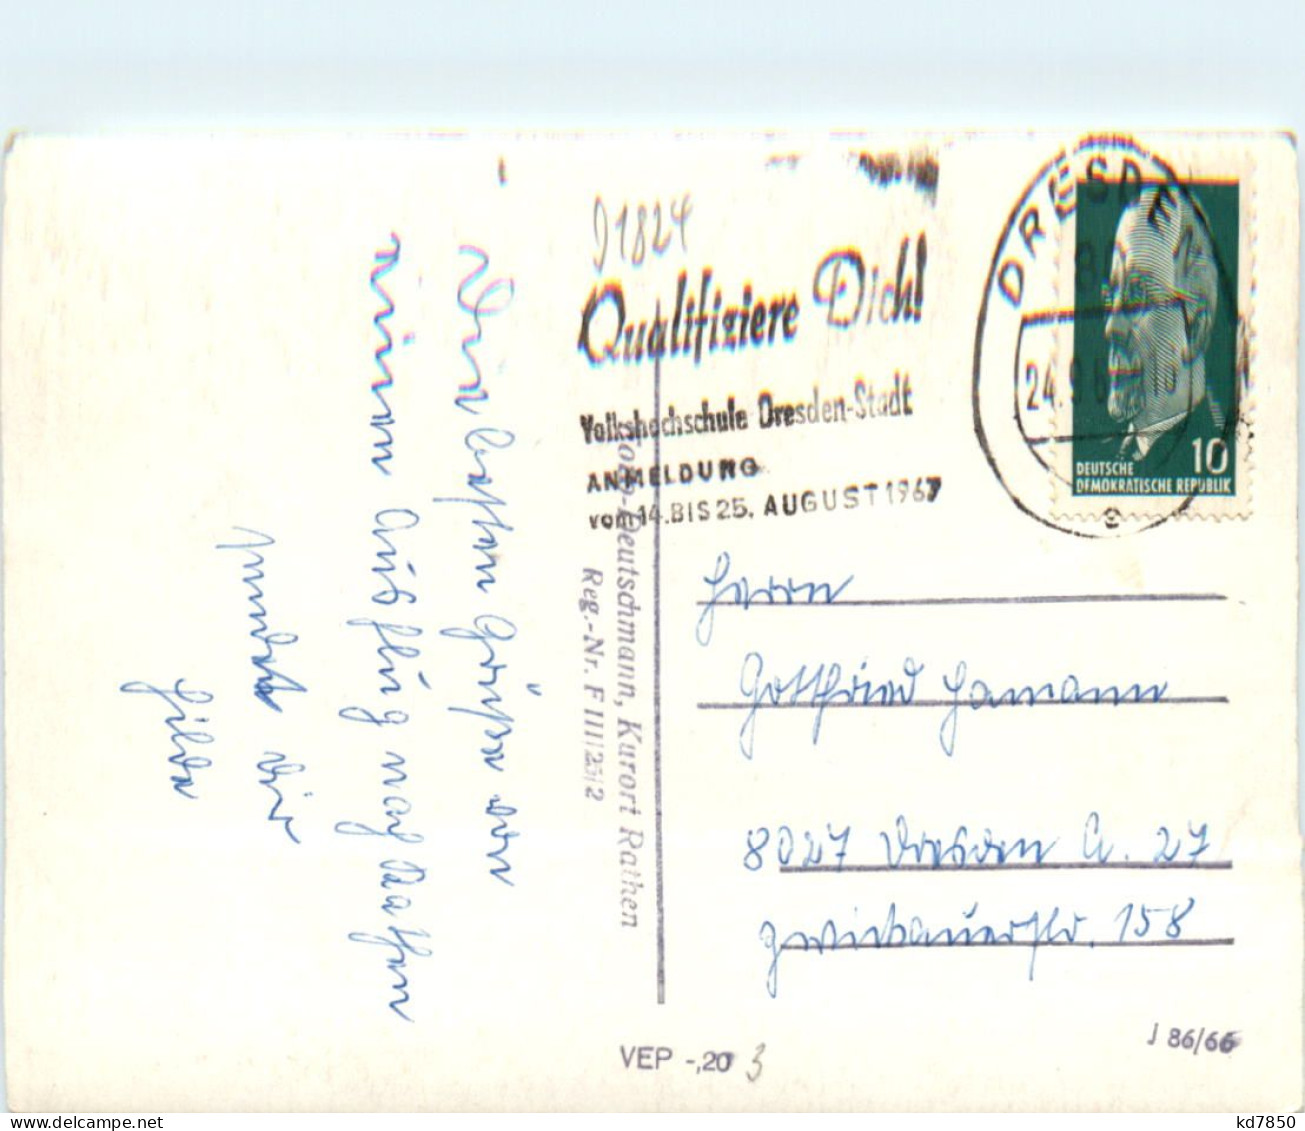 D1824
Qualifiziere Dich!
Volkshochschule Dresden-Stadt
ANMELDUNG
vom 14. BIS 25. AUGUST 1967
DRESDEN
80
24.9.6
10
DEUTSCHE
DEMOKRATISCHE REPUBLIK
Die besten Grüße von
einem Ausflug nach Rathen
sendet dir
Hilde
Foto-Deutschmann, Kurort Rathen
Reg.-Nr. F III/23/2
Herrn
Gottfried Hamann
8027 Dresden A. 27
Zwickauerstr. 158
VEP -,20 3
J 86/66
www.delcampe.net
kd7850